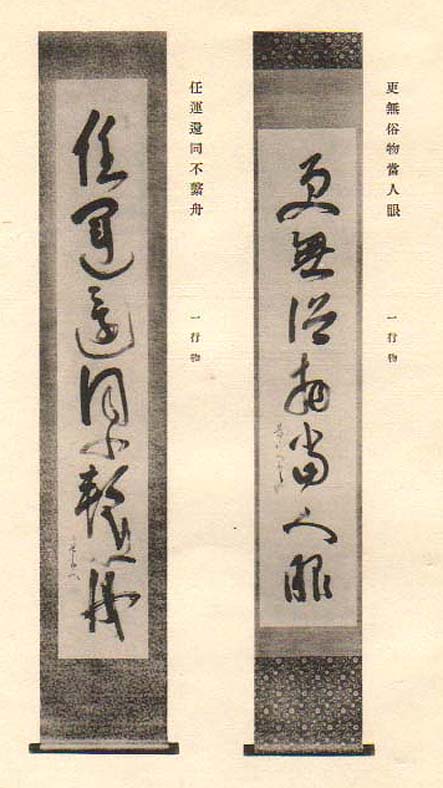 更無俗物當人眼
一行物
更無俗物當人眼
任運還同不繫舟
一行物
任運還同不繫舟